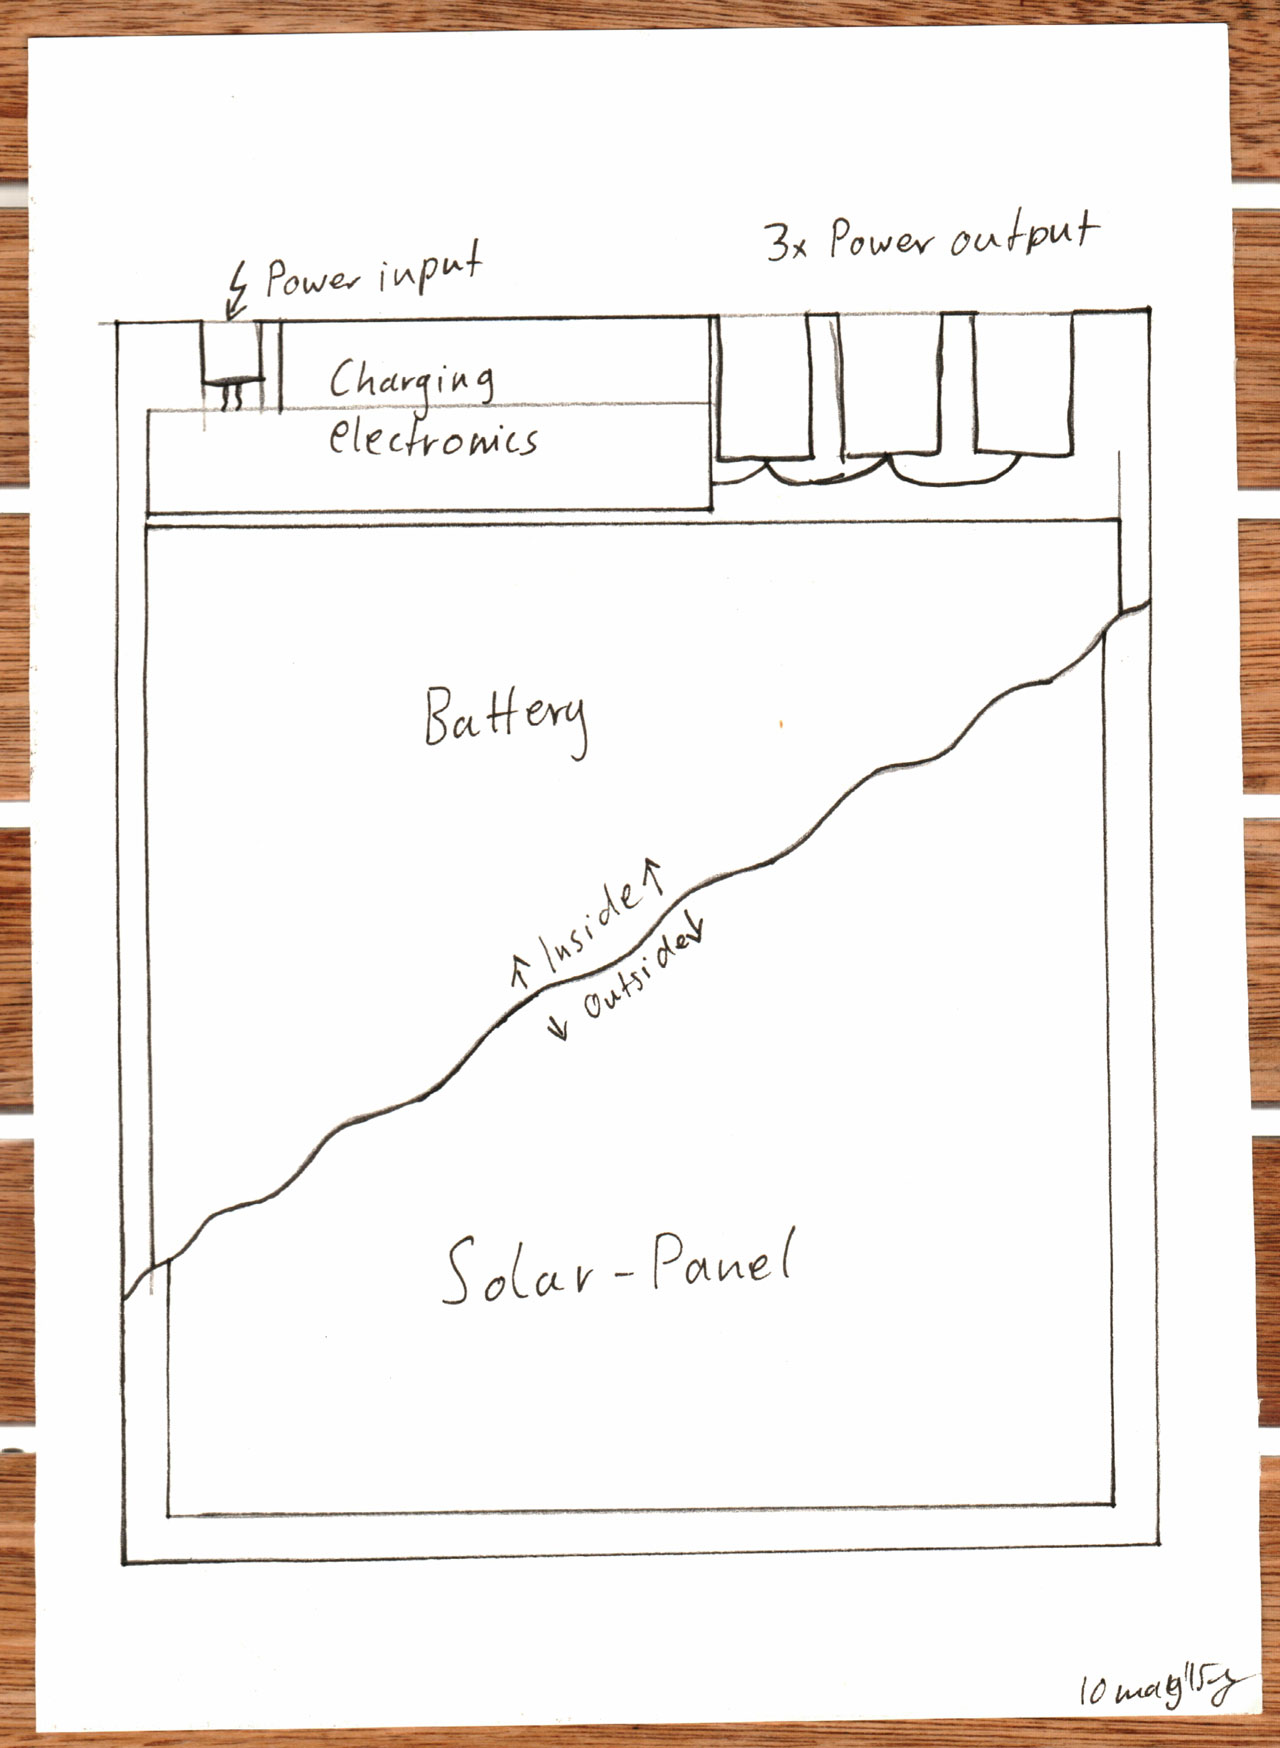 Power input
3x Power output
Charging
electronics
Battery
↑ Inside ↑
↓ Outside ↓
Solar-Panel
10